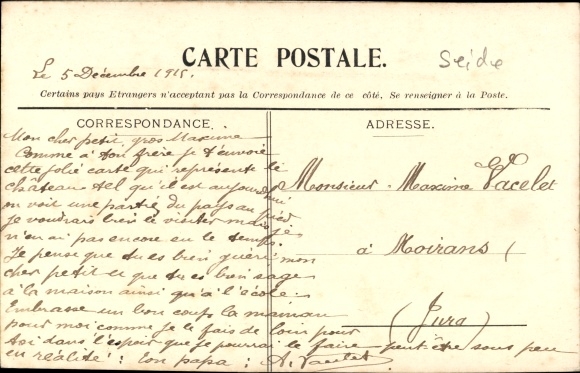 CARTE POSTALE.
Seide
Le 5 Décembre 1915.
Certains pays Etrangers n'acceptant pas la Correspondance de ce côté. Se renseigner à la Poste.
CORRESPONDANCE
Mon cher petit gros Maxime
Comme à ton frère je t'envoie
cette jolie carte qui représente le
château tel qu'il est aujourd'hui
on voit une partie du pays au pied
je voudrais bien le visiter mais je
n'en ai pas encore eu le temps.
Je pense que tu es bien guéri mon
cher petit et que tu es bien sage
à la maison ainsi qu'à l'école.
Embrasse un bon coup la maman
pour moi comme je le fais de loin pour
toi dans l'espoir que je pourrai le faire peut-être sous peu
en réalité : Ton papa : A. Vacelet
ADRESSE.
Monsieur Maxime Vacelet
à Moirans
(Jura)